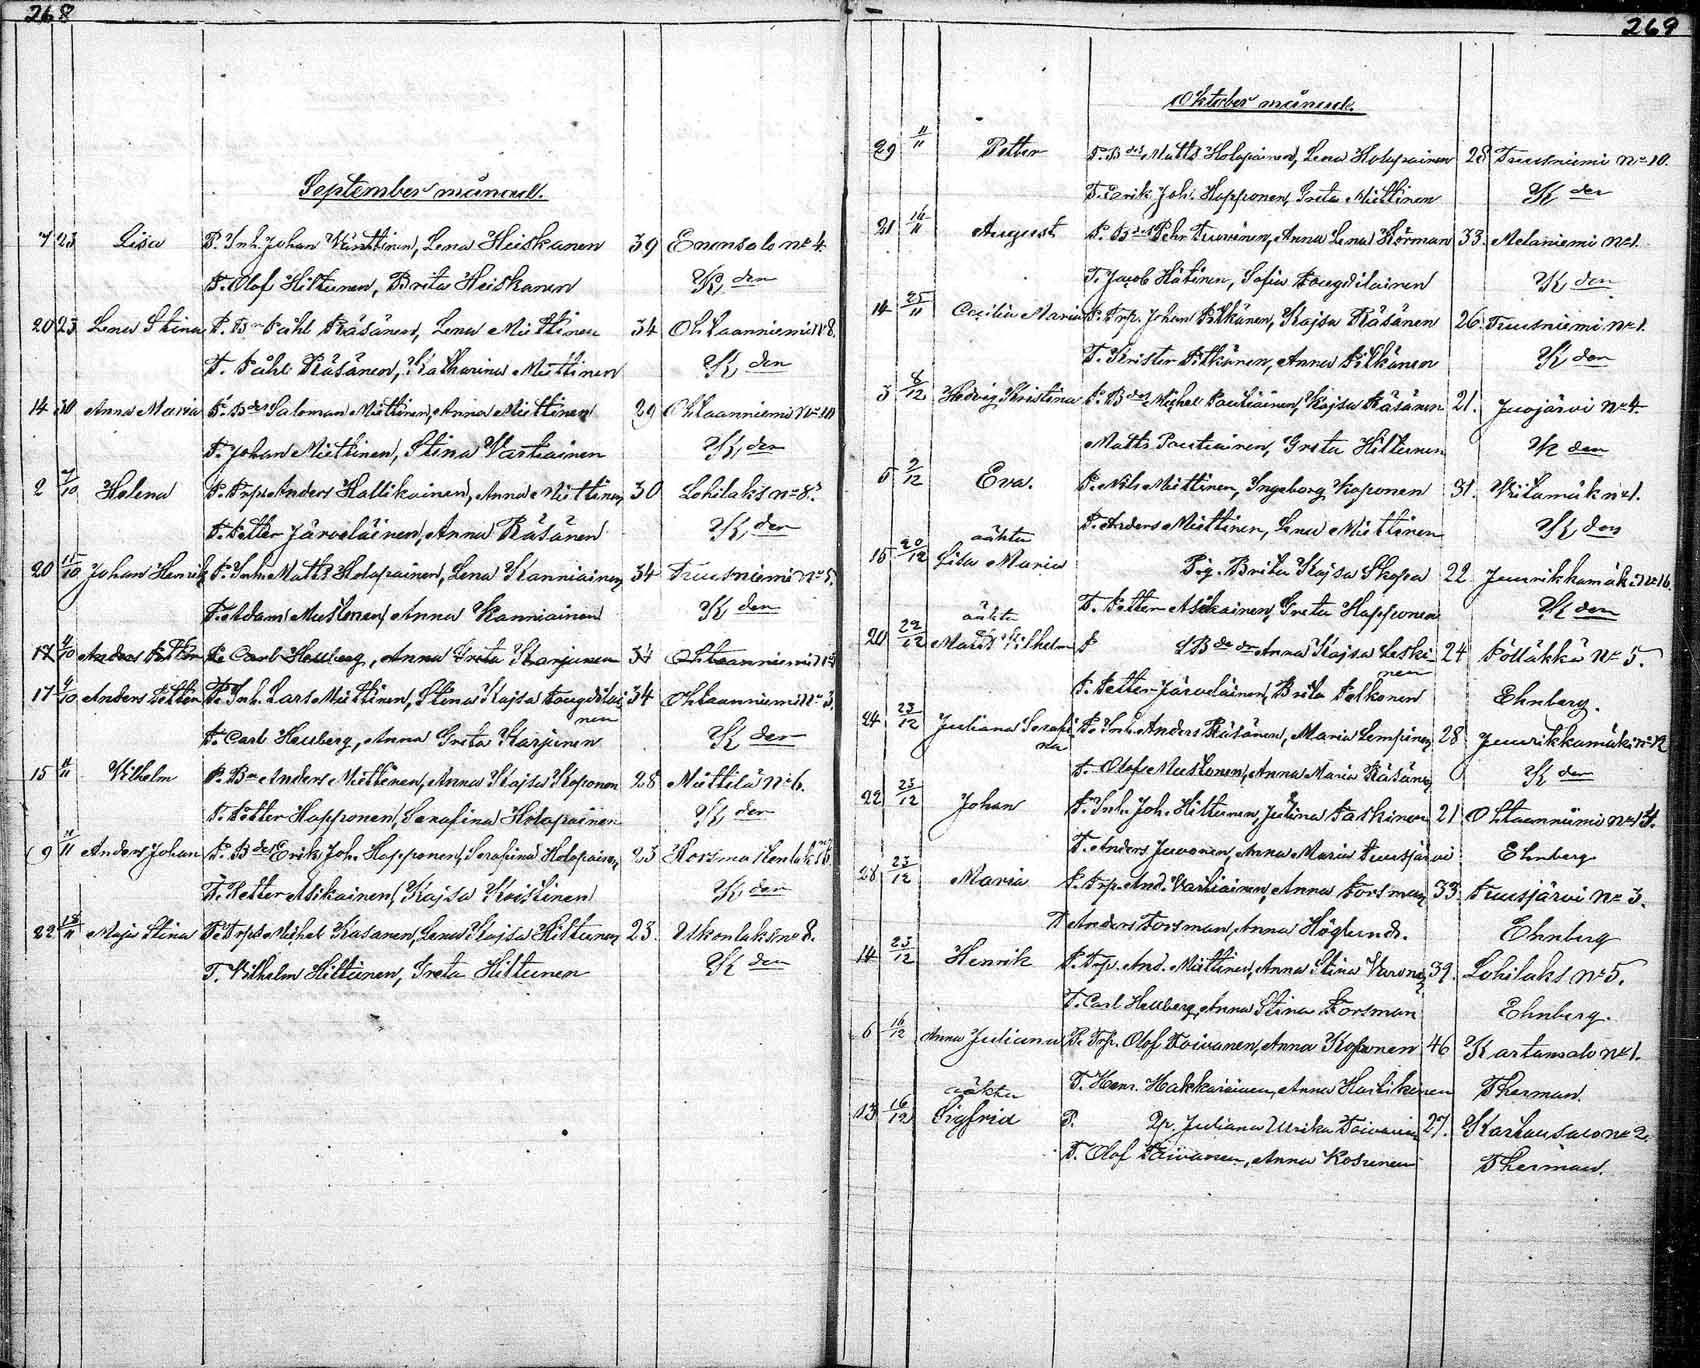 268
September månad.
7 23 Lisa P. Inh. Johan Väisttinen, Lena Heiskanen 39 Enonsalo No 4.
T. Olof Hiltunen, Brita Heiskanen K den
20 23 Lena Stina P. Bn Påhl Räsänen, Lena Miettinen 34 Ohtaanniemi No 8.
T. Påhl Räsänen, Katharina Miettinen K den
14 30 Anna Maria P. Bdes Saloman Miettinen, Anna Miettinen 29 Ohtaanniemi No 10
T. Johan Miettinen, Stina Vartiainen K den
2 7/10 Helena P. Trp. Anders Hallikainen, Anna Miettinen 30 Lohilaks No 8.
T. Petter Järveläinen, Anna Räsänen K den
20 15/10 Johan Henrik P. Inh. Matts Holapainen, Lena Kanniainen 34 Tuusniemi No 5.
T. Adam Mustonen, Anna Kanniainen K den
17 9/10 Anders Petter P. Carl Heuberg, Anna Greta Karjunen 34 Ohtaanniemi No
17 9/10 Anders Petter P. Inh. Lars Miettinen, Stina Kajsa Tougdilai- 34 Ohtaanniemi No 3.
nen
T. Carl Heuberg, Anna Greta Karjunen K den
15 11/11 Vilhelm P. Bn Anders Miettinen, Anna Kajsa Koponen 28 Miettilä No 6.
T. Petter Happonen, Serafina Holapainen K den
9 11/11 Anders Johan P. Bdes Erik Joh. Happonen, Serafina Holapainen 23 Kosma
T. Petter Asikainen, Kajsa Koistinen K den
22 18/11 Maja Stina P. Trp. Michel Kasanen, Lena Kajsa Hiltunen 23. Ukonlaks No 8.
T. Vilhelm Hiltunen, Greta Hiltunen K den
269
Oktober månad.
29 11/11 Petter P. Bdes Matts Holapainen, Lena Holapainen 28 Tuusniemi No 10.
T. Erik Joh. Happonen, Greta Miettinen K den
21 16/11 August P. Bdes Pehr Tuovinen, Anna Lena Hörman 33. Melaniemi No 1.
T. Jacob Hätinen, Sofia Tougdilainen K den
14 25/11 Cecilia Maria P. Trp. Johan Pitkänen, Kajsa Räsänen 26. Tuusniemi No 1.
T. Krister Pitkänen, Anna Pitkänen K den
3 8/12 Hedvig Kristina P. Bdes Michel Pautiainen, Kajsa Räsänen 21. Juojärvi No 4.
Matts Pautiainen, Greta Hiltunen K den
5 9/12 Eva. P. Nils Miettinen, Ingeborg Koponen 31. Viitamäk No 1.
T. Anders Miettinen, Lena Miettinen K den
oäkta
15 20/12 Lisa Maria Pig. Brita Kajsa Skopa 22 Juurikkamäki No 16.
T. Petter Asikainen, Greta Happonen K den
oäkta
20 22/12 Matts Vilhelm P. Bde dr Anna Kajsa Leski- 24 Pölläkkä No 5.
nen
T. Petter Järveläinen, Brita Pelkonen Ehnberg.
24 23/12 Juliana Serafi P. Inh. Anders Räsänen, Maria Lempinen 28 Juurikkamäki No 12
na
T. Olof Mustonen, Anna Maria Räsänen K den
22 23/12 Johan P. Inh. Joh. Hiltunen, Justina Paskinen 21 Ohtaanniemi No 14.
T. Anders Juvonen, Anna Maria Tuusjärvi Ehnberg
28 23/12 Maria P. Trp. And. Vartiainen, Anna Forsman 33. Tuusjärvi No 3.
T. Anders Forsman, Anna Höglund. Ehnberg
14 23/12 Henrik P. Trp. And. Miettinen, Anna Stina Varonen 39. Lohilaks No 5.
T. Carl Heuberg, Anna Stina Forsman Ehnberg.
6 16/12 Anna Juliana P. Trp. Olof Toivanen, Anna Koponen 46 Kartansalo No 1.
T. Henr. Hakkarainen, Anna Therman.
oäkta
13 16/12 Sigfrid P. Pp. Juliana Ulrika Toivanen 27. Kartansalo No 2.
T. Olof Toivanen, Anna Kosunen Therman.